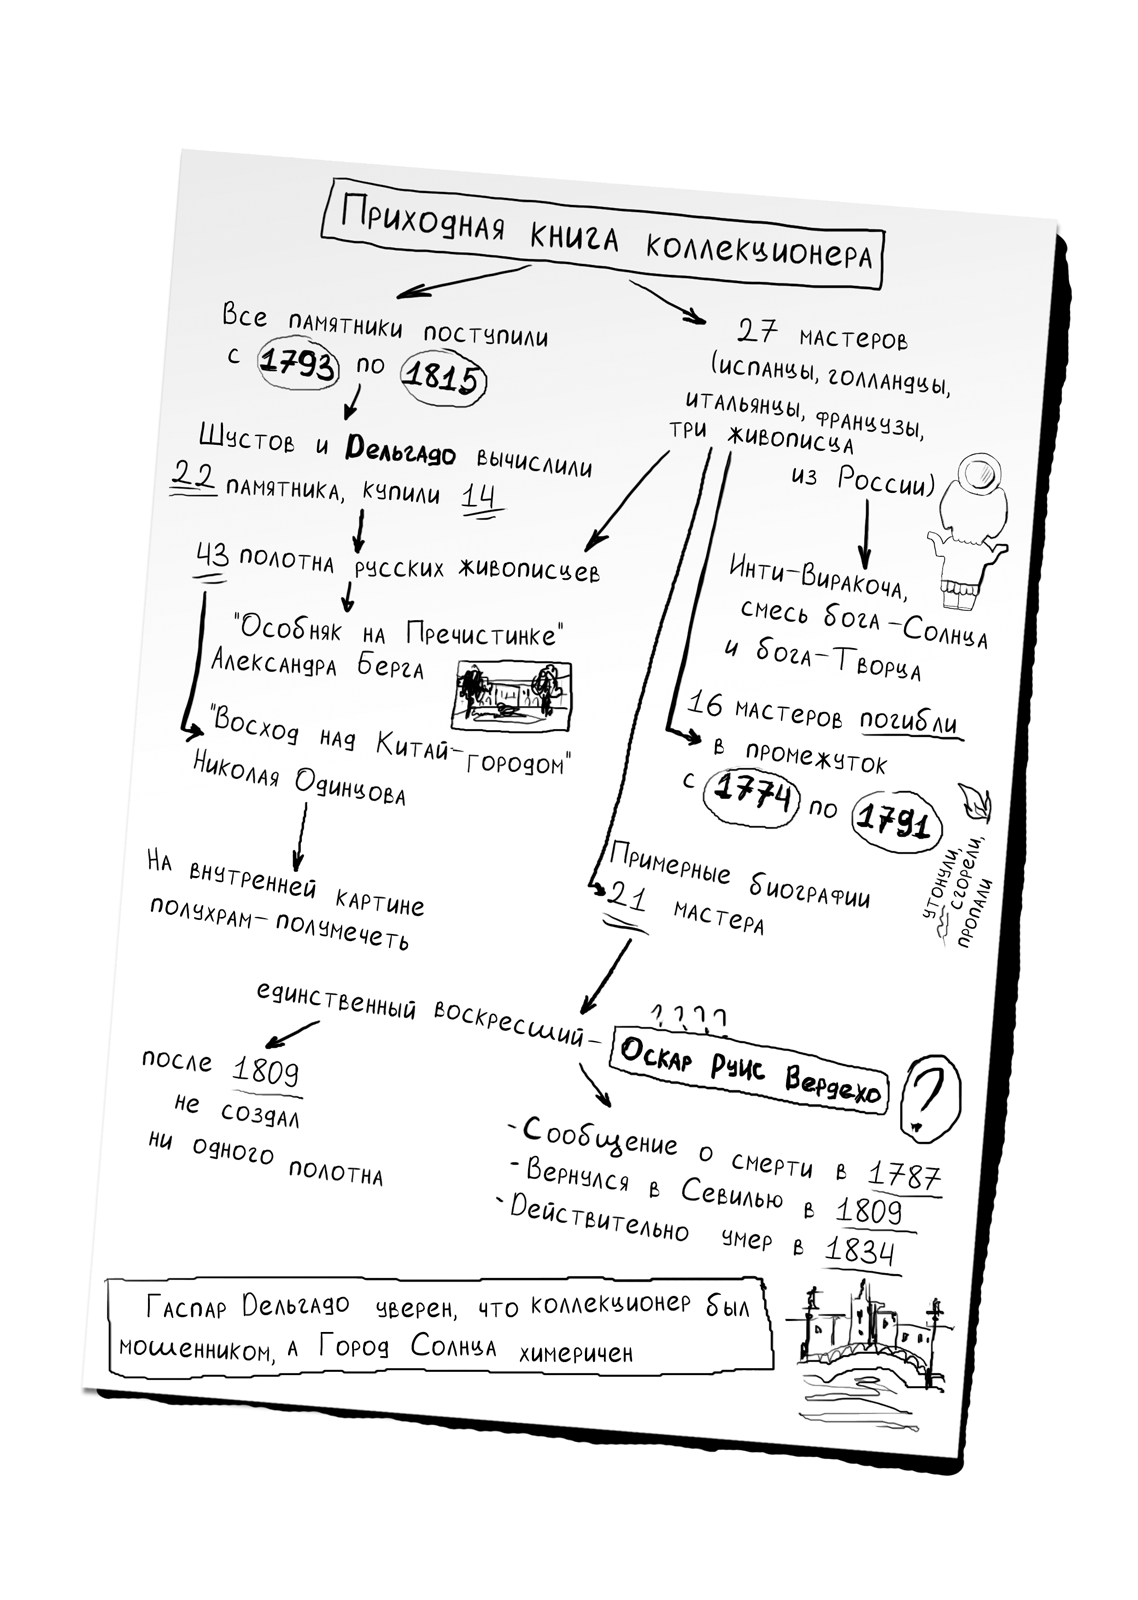 Приходная книга коллекционера
Все памятники поступили
с 1793 по 1815
Шустов и Дельгадо вычислили
22 памятника, купили 14
43 полотна русских живописцев
"Особняк на Пречистинке"
Александра Берга
"Восход над Китай-городом"
Николая Одинцова
На внутренней картине
полухрам-полумечеть
27 мастеров
(испанцы, голландцы,
итальянцы, французы,
три живописца
из России)
Инти-Виракоча,
смесь бога-Солнца
и бога-Творца
16 мастеров погибли
в промежуток
с 1774 по 1791
утонули,
сгорели,
пропали
Примерные биографии
21 мастера
единственный воскресший-
? ? ? ?
Оскар Руис Вердехо
?
после 1809
не создал
ни одного полотна
-Сообщение о смерти в 1787
-Вернулся в Севилью в 1809
-Действительно умер в 1834
Гаспар Дельгадо уверен, что коллекционер был
мошенником, а Город Солнца химеричен